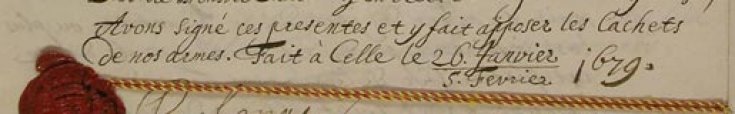 Avons signé ces presentes et y fait apposer les Cachets
de nos armes. Fait à Celle le 26. Janvier 1679.
5. Fevrier